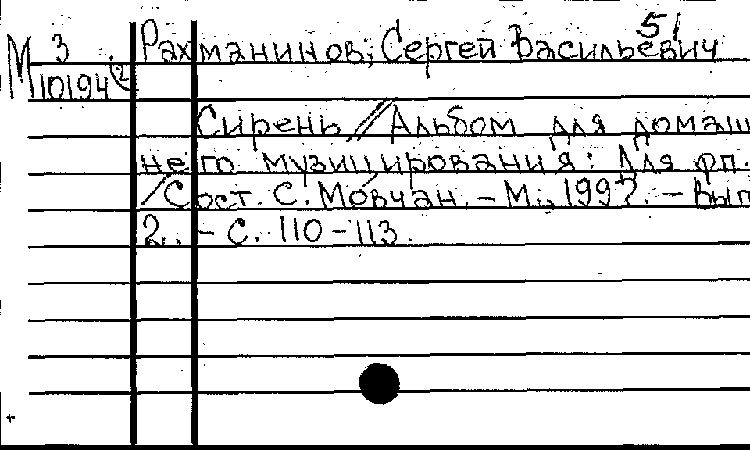 51
М 3
10194 (2
Рахманинов, Сергей Васильевич
Сирень // Альбом для домаш
него музицирования: Для фп.
/ Сост. С. Мовчан. - М., 1997. - Вып
2. - С. 110-113.